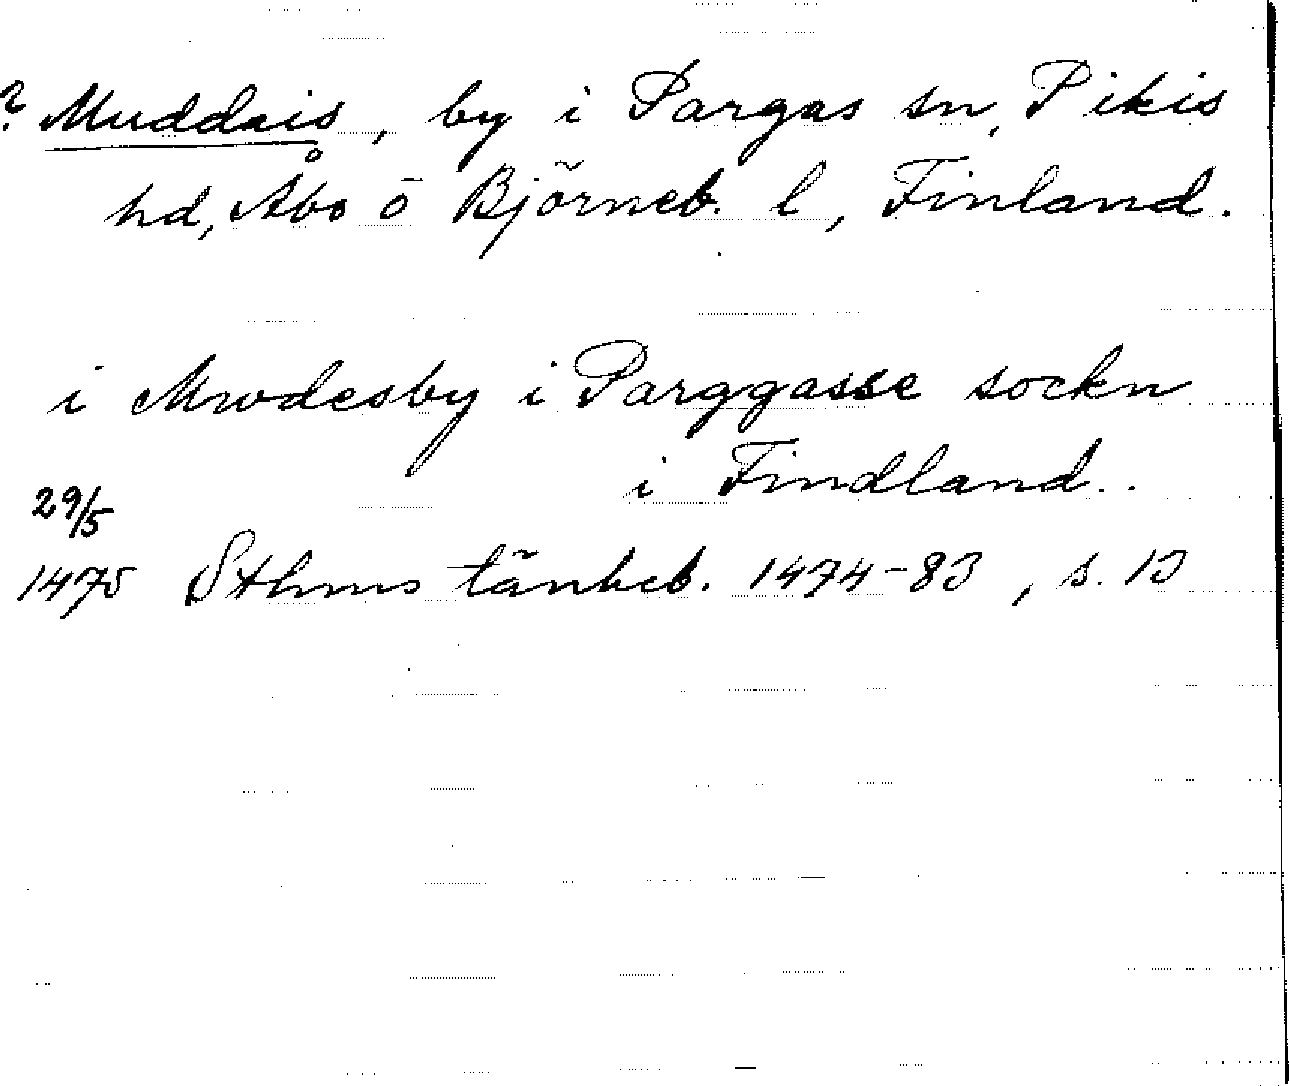 ? Muddais, by i Pargas sn, Pikis
hd, Åbo o Björneb. l, Finland.
i Mwdesby i Parggasse sockn
i Findland..
29/5
1475 Sthms tänkeb. 1474-83, s. 13